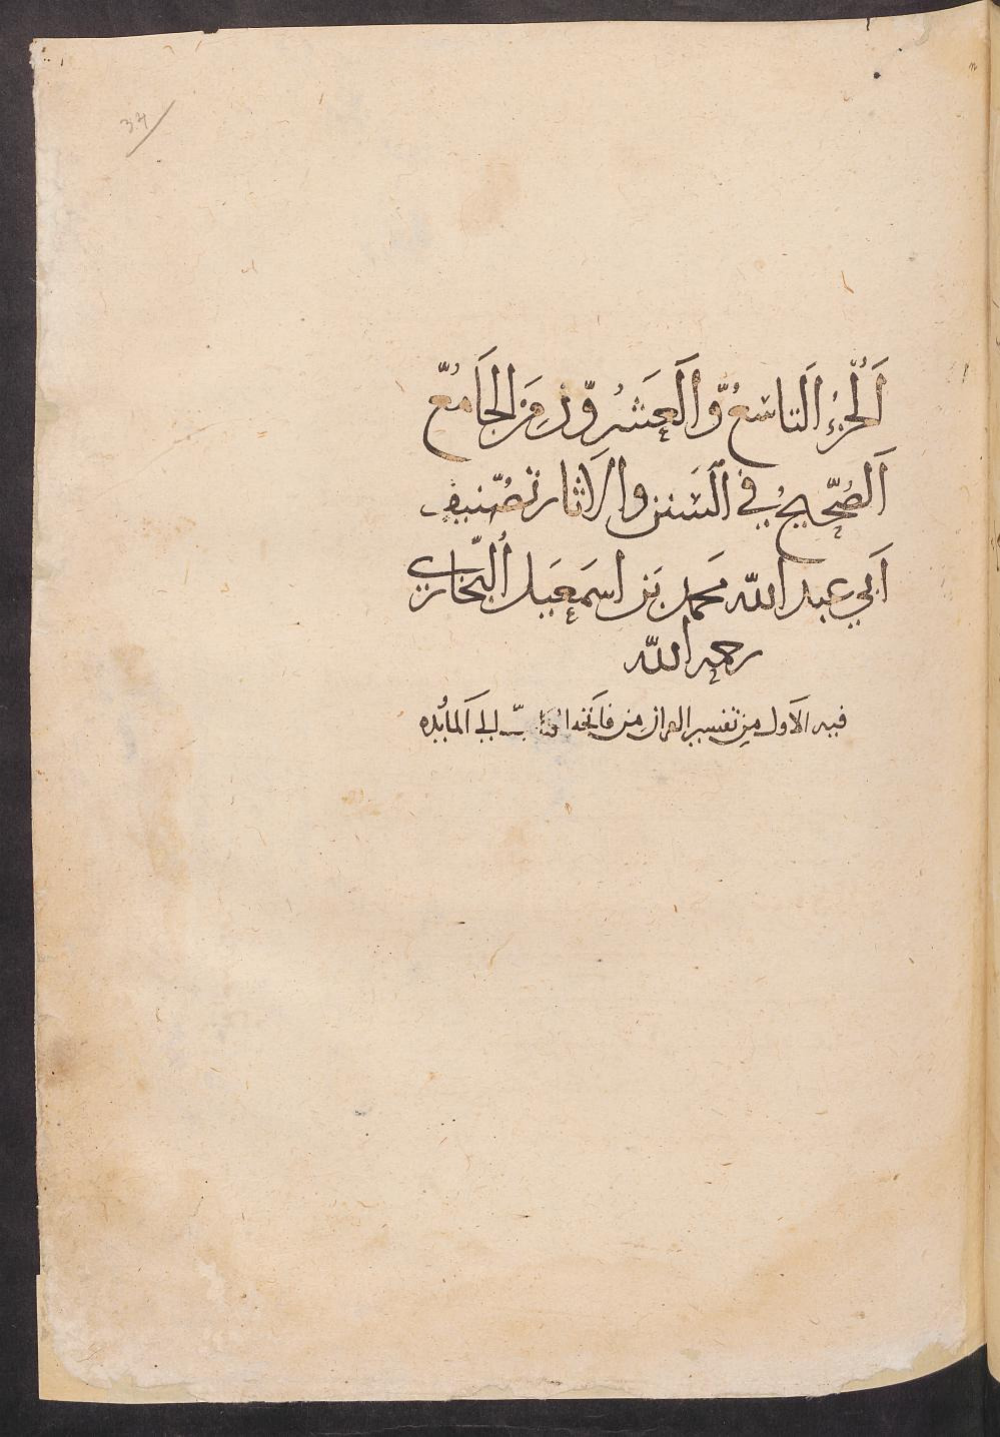 34
اَلْجُزءُ اَلتاسعُ وَّاَلعَشرُوّن مَن الجَامعُّ
اَلصُّحيحُ في السَنن والاثار تصُنيف
اَبي عبد الله محمد بَن اسمَعَيل اُلبّخاري
رحمه الله
فيه الاَول من تفسير القران من فاتحة الكتاب الي اَلمائده